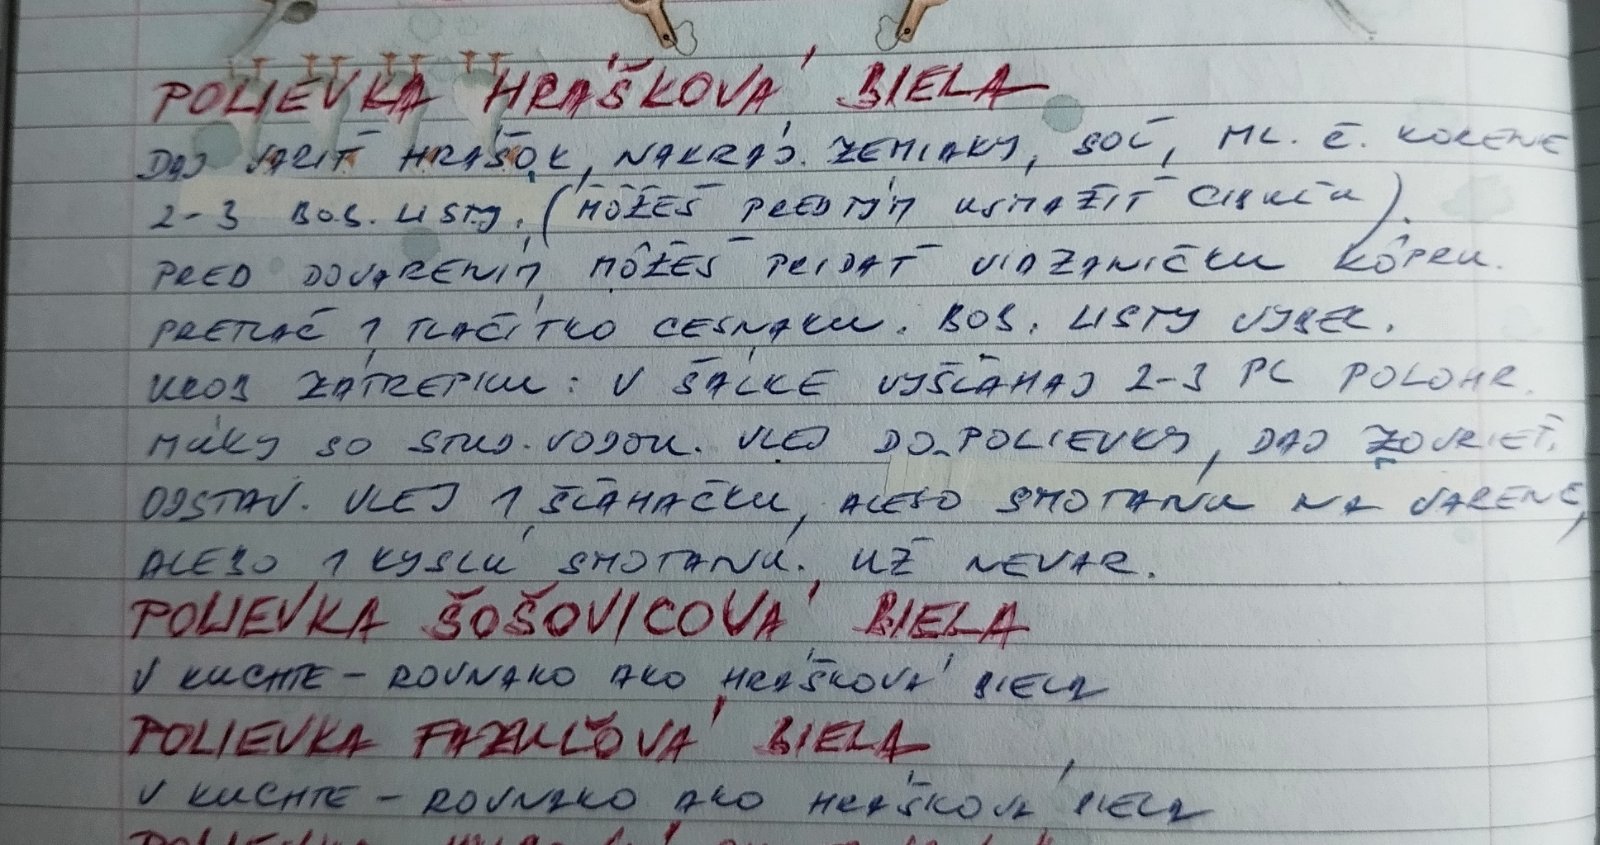 POLIEVKA HRÁŠKOVÁ BIELA
DAJ VARIŤ HRÁŠOK, NAKRÁJ. ZEMIAKY, SOĽ, ML. Č. KORENIE
2-3 BOB. LISTY. (MÔŽEŠ PREDTÝM USMAŽIŤ CIBUĽU).
PRED DOVARENÍM MÔŽEŠ PRIDAŤ VIAZANIČKU KÔPRU.
PRETLAČ 1 TLAČÍTKO CESNAKU. BOB. LISTY VYBER.
UROB ZÁTREPKU: V ŠÁLKE VYŠĽAHAJ 2-3 PL POLOHR.
MÚKY SO STUD. VODOU. VLEJ DO POLIEVKY, DAJ ZOVRIEŤ.
ODSTAV. VLEJ 1 ŠĽAHAČKU, ALEBO SMOTANU NA VARENIE,
ALEBO 1 KYSLÚ SMOTANU. UŽ NEVAR.
POLIEVKA ŠOŠOVICOVÁ BIELA
V KUCHTE - ROVNAKO AKO HRÁŠKOVÁ BIELA
POLIEVKA FAZUĽOVÁ BIELA
V KUCHTE - ROVNAKO AKO HRÁŠKOVÁ BIELA
POLIEVKA